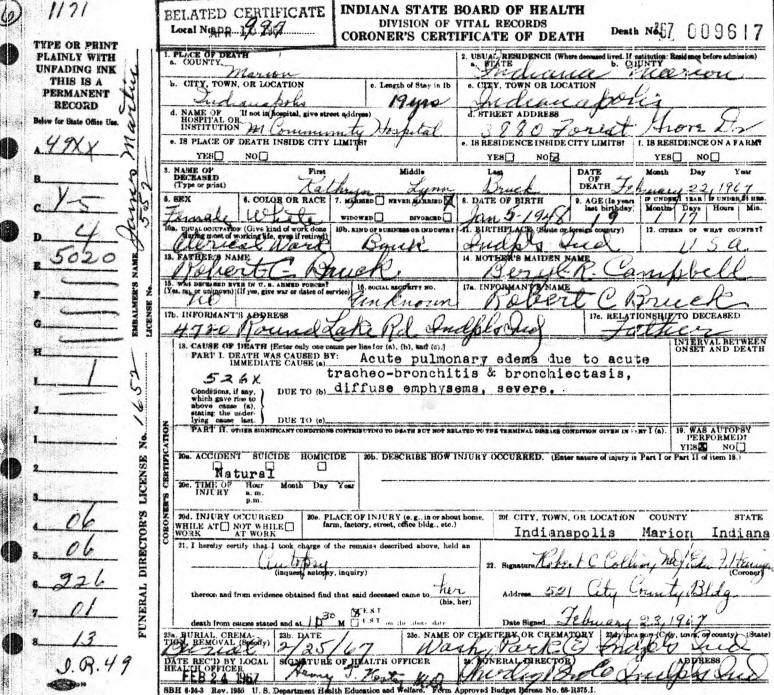 1171
BELATED CERTIFICATE
Local No. 997
APR 1967
INDIANA STATE BOARD OF HEALTH
DIVISION OF VITAL RECORDS
CORONER'S CERTIFICATE OF DEATH
Death No. 67 009617
TYPE OR PRINT
PLAINLY WITH
UNFADING INK
THIS IS A
PERMANENT
RECORD
Below for State Office Use.
A. 49XX
B.
C. Y-5
D. 4
E. 5020
F
G
H
I 1
J
1
2
3
4 06
5 06
6 226
7 01
8 13
I.R. 49
EMBALMER'S NAME James Martin
LICENSE No. 552
FUNERAL DIRECTOR'S LICENSE No. 1652
CORONER'S CERTIFICATION
1. PLACE OF DEATH
a. COUNTY Marion
2. USUAL RESIDENCE (Where deceased lived. If institution: Residence before admission)
a. STATE Indiana b. COUNTY Marion
b. CITY, TOWN, OR LOCATION Indianapolis
c. Length of Stay in 1b 19 yrs
c. CITY, TOWN, OR LOCATION Indianapolis
d. NAME OF HOSPITAL OR INSTITUTION (If not in hospital, give street address) M Community Hospital
d. STREET ADDRESS 3880 Forest Grove Dr
e. IS PLACE OF DEATH INSIDE CITY LIMITS? YES NO
e. IS RESIDENCE INSIDE CITY LIMITS? YES NO
f. IS RESIDENCE ON A FARM? YES NO
3. NAME OF DECEASED (Type or print)
First Kathryn Middle Lynn Last Bruck
DATE OF DEATH Month Day Year February 22, 1967
5. SEX Female
6. COLOR OR RACE White
7. MARRIED NEVER MARRIED
WIDOWED DIVORCED
8. DATE OF BIRTH Jan 5-1948
9. AGE (In years last birthday) 19
IF UNDER 1 YEAR IF UNDER 24 HRS.
Months Days Hours Min.
17
10a. USUAL OCCUPATION (Give kind of work done during most of working life, even if retired) Clerical Work
10b. KIND OF BUSINESS OR INDUSTRY Bank
11. BIRTHPLACE (State or foreign country) Indpls Ind
12. CITIZEN OF WHAT COUNTRY? USA
13. FATHER'S NAME Robert C Bruck
14. MOTHER'S MAIDEN NAME Beryl R. Campbell
15. WAS DECEASED EVER IN U. S. ARMED FORCES?
(Yes, no, or unknown) (If yes, give war or dates of service) no
16. SOCIAL SECURITY NO. Unknown
17a. INFORMANT'S NAME Robert C Bruck
17b. INFORMANT'S ADDRESS 4720 Round Lake Rd Indpls Ind
17c. RELATIONSHIP TO DECEASED Father
18. CAUSE OF DEATH [Enter only one cause per line for (a), (b), and (c).]
INTERVAL BETWEEN ONSET AND DEATH
PART I. DEATH WAS CAUSED BY:
IMMEDIATE CAUSE (a) Acute pulmonary edema due to acute
tracheo-bronchitis & bronchiectasis,
526X
Conditions, if any, which gave rise to above cause (a), stating the underlying cause last.
DUE TO (b) diffuse emphysema, severe.
DUE TO (c)
PART II. OTHER SIGNIFICANT CONDITIONS CONTRIBUTING TO DEATH BUT NOT RELATED TO THE TERMINAL DISEASE CONDITION GIVEN IN PART I (a).
19. WAS AUTOPSY PERFORMED? YES NO
20a. ACCIDENT SUICIDE HOMICIDE
Natural
20b. DESCRIBE HOW INJURY OCCURRED. (Enter nature of injury in Part I or Part II of item 18.)
20c. TIME OF INJURY Hour Month Day Year
a. m.
p.m.
20d. INJURY OCCURRED
WHILE AT WORK NOT WHILE AT WORK
20e. PLACE OF INJURY (e.g., in or about home, farm, factory, street, office bldg., etc.)
20f. CITY, TOWN, OR LOCATION COUNTY STATE
Indianapolis Marion Indiana
21. I hereby certify that I took charge of the remains described above, held an
Autopsy
(inquest, autopsy, inquiry)
thereon and from evidence obtained find that said deceased came to her
(his, her)
death from causes stated and at M EST on the above date
22. Signature
(Coroner)
Address 521 City County Bldg.
Date Signed February 23, 1967
23a. BURIAL, CREMATION, REMOVAL (Specify) Burial
23b. DATE 2/25/67
23c. NAME OF CEMETERY OR CREMATORY Wash. Park
23d. LOCATION (City, town, or county) (State) Indpls Ind
DATE REC'D BY LOCAL HEALTH OFFICER FEB 24 1967
SIGNATURE OF HEALTH OFFICER
FUNERAL DIRECTOR
ADDRESS Indpls Ind
SBH 6-24-3 Rev. 1955 U. S. Department Health Education and Welfare. Form Approved Budget Bureau No. 68-R375.1.